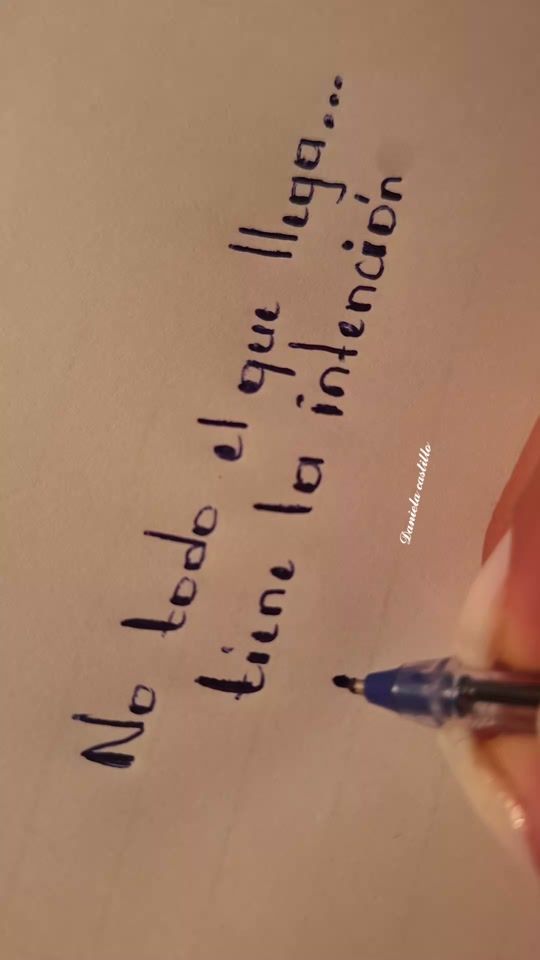 No todo el que llega...
tiene la intención
Daniela castillo